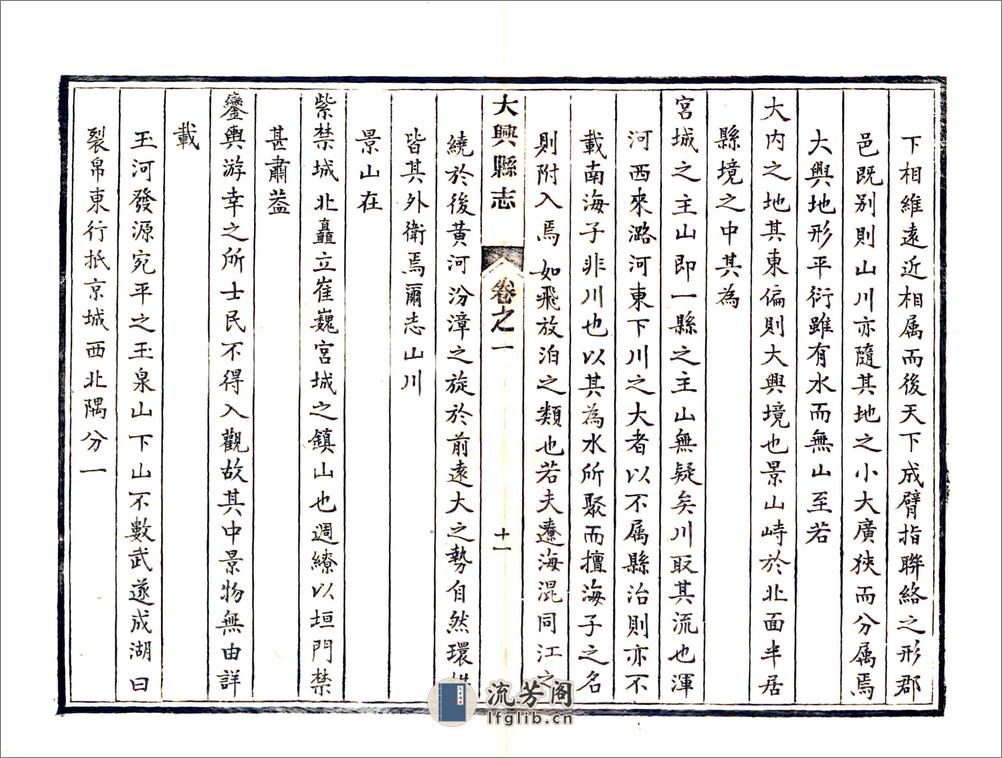 下相維遠近相属而後天下成臂指聯絡之形郡
邑既别則山川亦隨其地之小大廣狹而分属焉
大興地形平衍雖有水而無山至若
大内之地其東偏則大興境也景山峙於北面半居
縣境之中其為
宮城之主山即一縣之主山無疑矣川取其流也渾
河西來潞河東下川之大者以不属縣治則亦不
載南海子非川也以其為水所聚而擅海子之名
則附入焉如飛放泊之類也若夫遼海混同江之
大興縣志 卷之一 十一
繞於後黄河汾漳之旋於前遠大之勢自然環
皆其外衛焉爾志山川
景山在
紫禁城北矗立崔巍宮城之鎮山也週繚以垣門禁
甚肅葢
鑾輿游幸之所士民不得入觀故其中景物無由詳
載
玉河發源宛平之玉泉山下山不數武遂成湖曰
裂帛東行抵京城西北隅分一
流芳阁
lfglib.cn